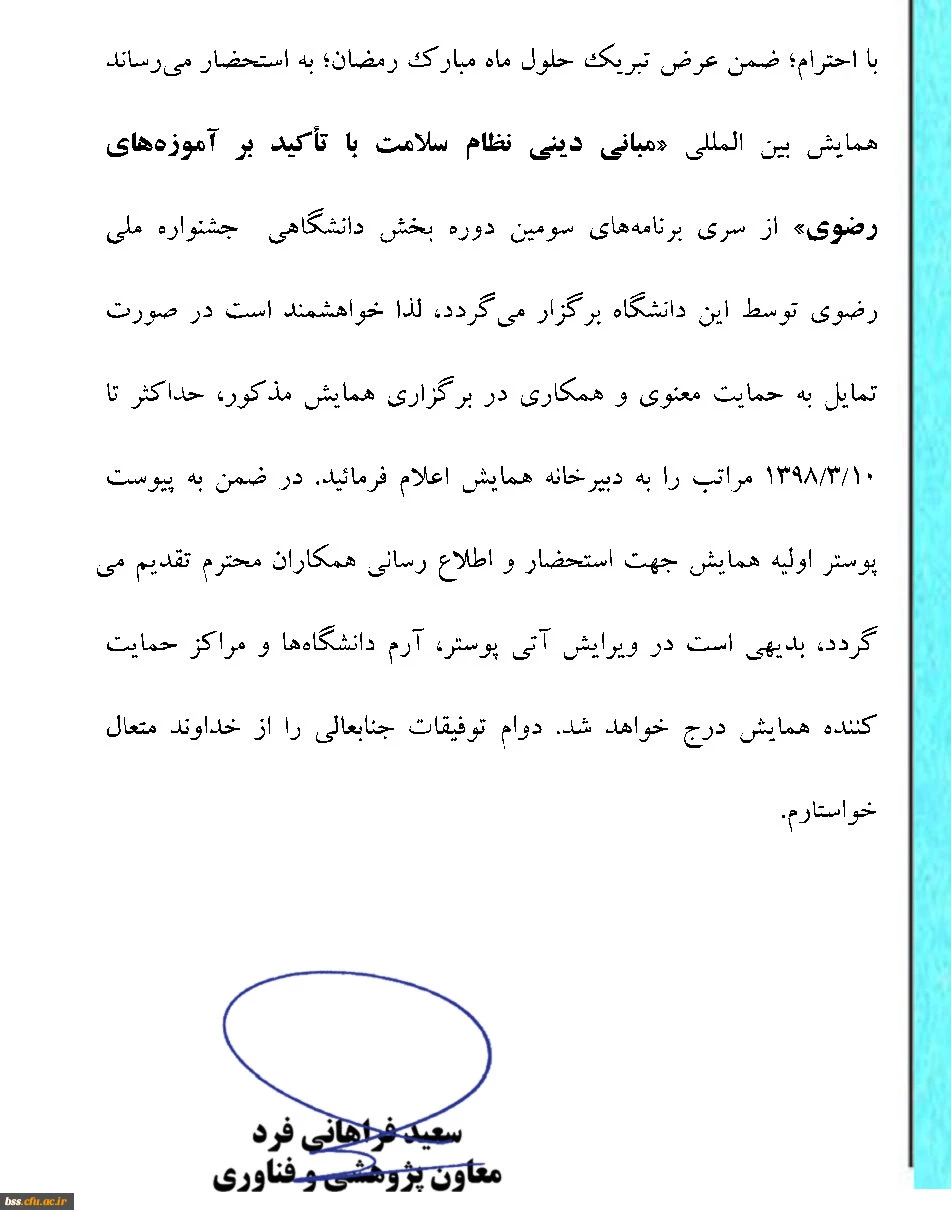 با احترام؛ ضمن عرض تبریک حلول ماه مبارک رمضان؛ به استحضار می‌رساند
همایش بین المللی «مبانی دینی نظام سلامت با تأکید بر آموزه‌های
رضوی» از سری برنامه‌های سومین دوره بخش دانشگاهی جشنواره ملی
رضوی توسط این دانشگاه برگزار می‌گردد، لذا خواهشمند است در صورت
تمایل به حمایت معنوی و همکاری در برگزاری همایش مذکور، حداکثر تا
۱۳۹۸/۳/۱۰ مراتب را به دبیرخانه همایش اعلام فرمائید. در ضمن به پیوست
پوستر اولیه همایش جهت استحضار و اطلاع رسانی همکاران محترم تقدیم می
گردد، بدیهی است در ویرایش آتی پوستر، آرم دانشگاه‌ها و مراکز حمایت
کننده همایش درج خواهد شد. دوام توفیقات جنابعالی را از خداوند متعال
خواستارم.
سعید فراهانی فرد
معاون پژوهشی و فناوری
bss.cfu.ac.ir